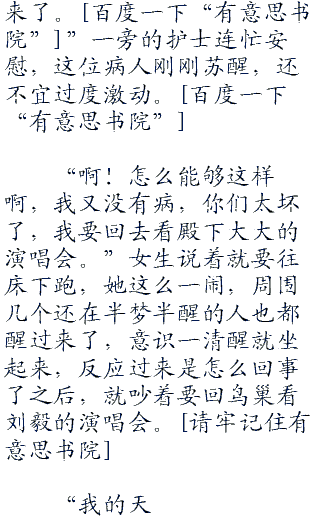 来了。[百度一下“有意思书
院”]”一旁的护士连忙安
慰，这位病人刚刚苏醒，还
不宜过度激动。[百度一下
“有意思书院”]
“啊！怎么能够这样
啊，我又没有病，你们太坏
了，我要回去看殿下大大的
演唱会。”女生说着就要往
床下跑，她这么一闹，周围
几个还在半梦半醒的人也都
醒过来了，意识一清醒就坐
起来，反应过来是怎么回事
了之后，就吵着要回鸟巢看
刘毅的演唱会。[请牢记住有
意思书院]
“我的天